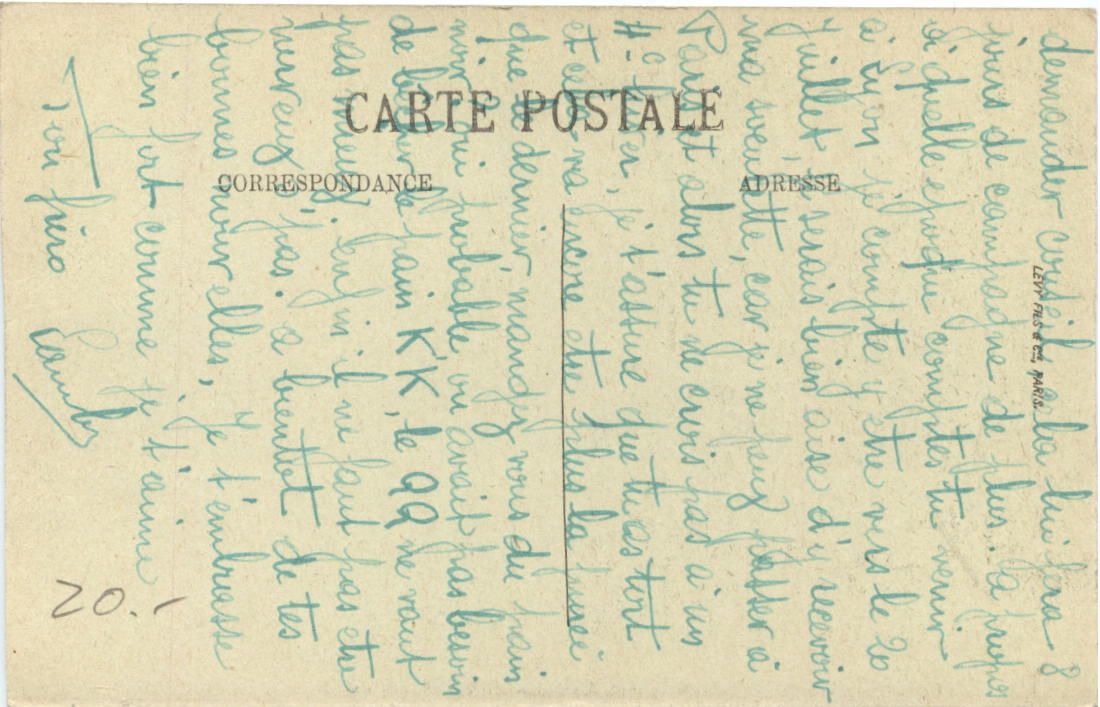 CARTE POSTALE
CORRESPONDANCE
ADRESSE
LEVY FILS & Cie, PARIS.
demander conseil, cela lui fera 8
jours de campagne de plus. à propos
à quelle époque comptes tu venir
à Lyon, je compte y être vers le 20
juillet, serais bien aise d'y recevoir
ma soeurette, car je ne peux passer à
Paris et alors tu ne crois pas à un
je t'assure que tu as tort
et cela va encore être plus la purée
que le dernier, mangez vous du pain
noir oui probable on avait pas besoin
de blaguer le pain KK, le 99 ne vaut
pas mieux, enfin il ne faut pas être
nerveux, pas. à bientôt de tes
bonnes nouvelles, je t'embrasse
bien fort comme je t'aime
Ton fréro
20.-